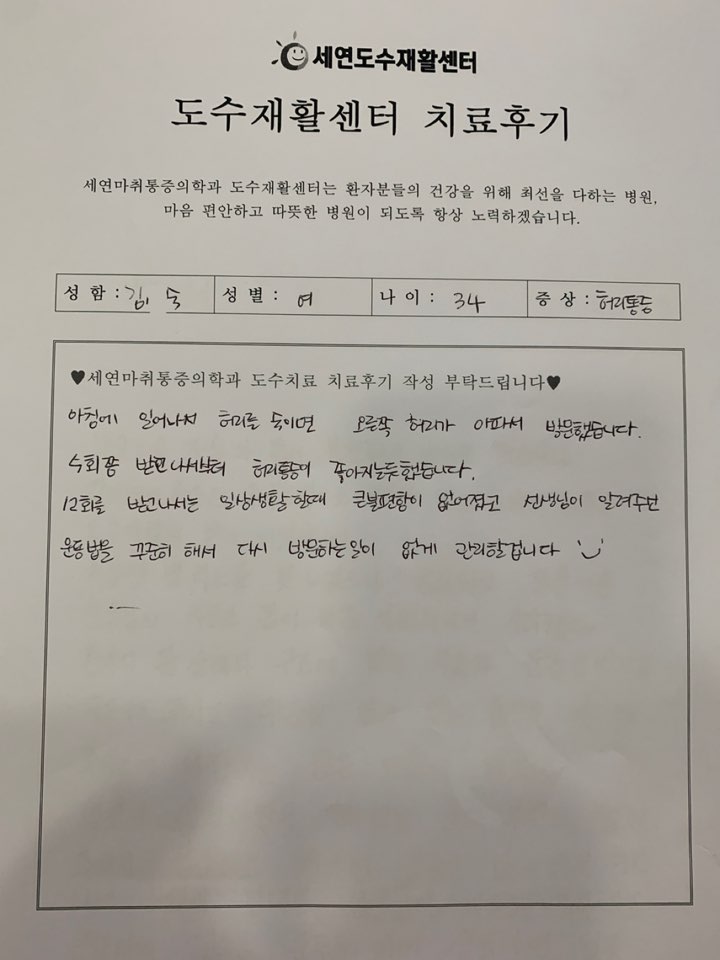 세연도수재활센터
도수재활센터 치료후기
세연마취통증의학과 도수재활센터는 환자분들의 건강을 위해 최선을 다하는 병원,
마음 편안하고 따뜻한 병원이 되도록 항상 노력하겠습니다.
성 함 : 김 숙 성 별 : 여 나 이 : 34 증 상 : 허리통증
♥세연마취통증의학과 도수치료 치료후기 작성 부탁드립니다♥
아침에 일어나서 허리를 숙이면 오른쪽 허리가 아파서 방문했습니다.
수회쯤 받고나서부터 허리통증이 좋아지는듯했습니다.
12회를 받고나서는 일상생활할때 큰불편함이 없어졌고 선생님이 알려주신
운동법을 꾸준히 해서 다시 방문하는일이 없게 관리할겁니다